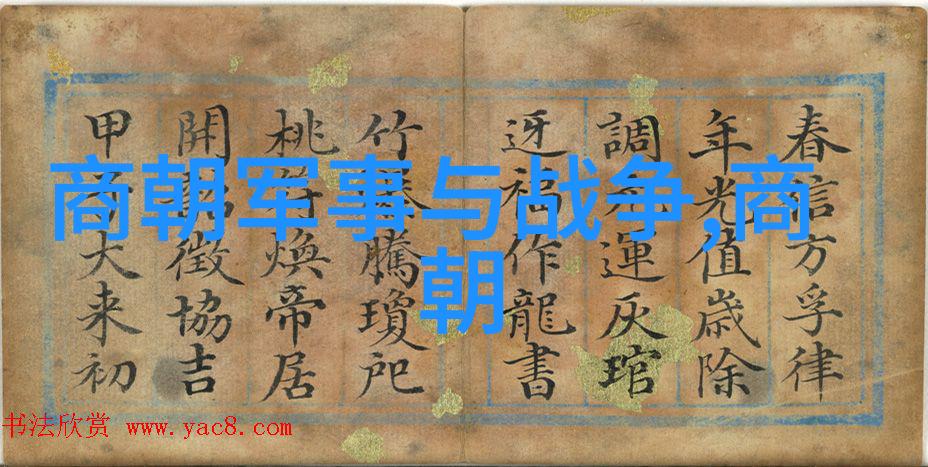 商朝军事与战争,商
朝
春信方孚律
年光值歲除
調元運灰琯
迓福作龍書
竹騰瓊戺
桃符煥帝居
開徵協吉
甲大来初
书法欣赏 www.yac8.com